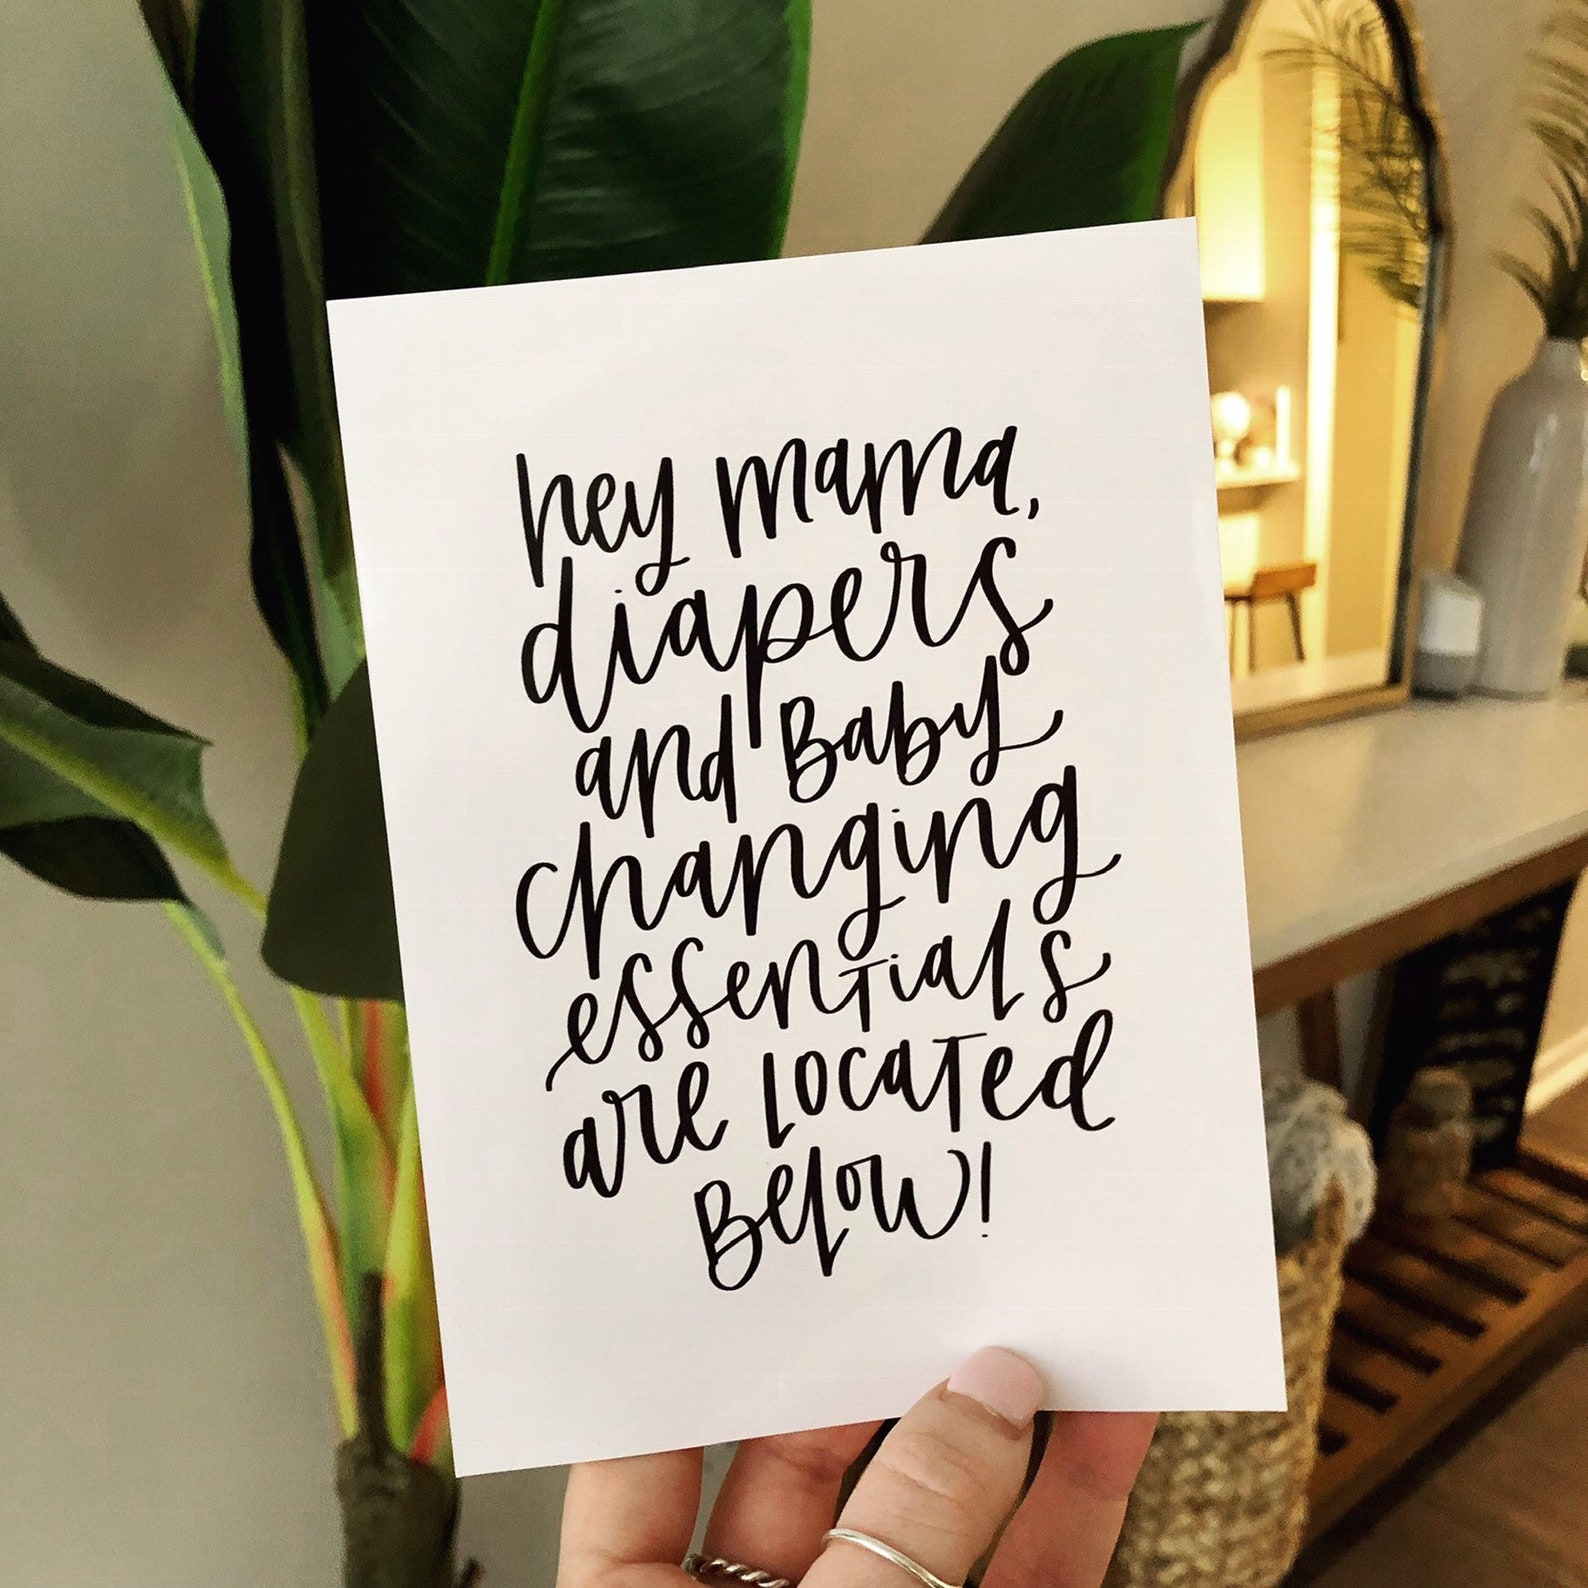 hey mama,
diapers
and Baby
changing
essentials
are located
Below!